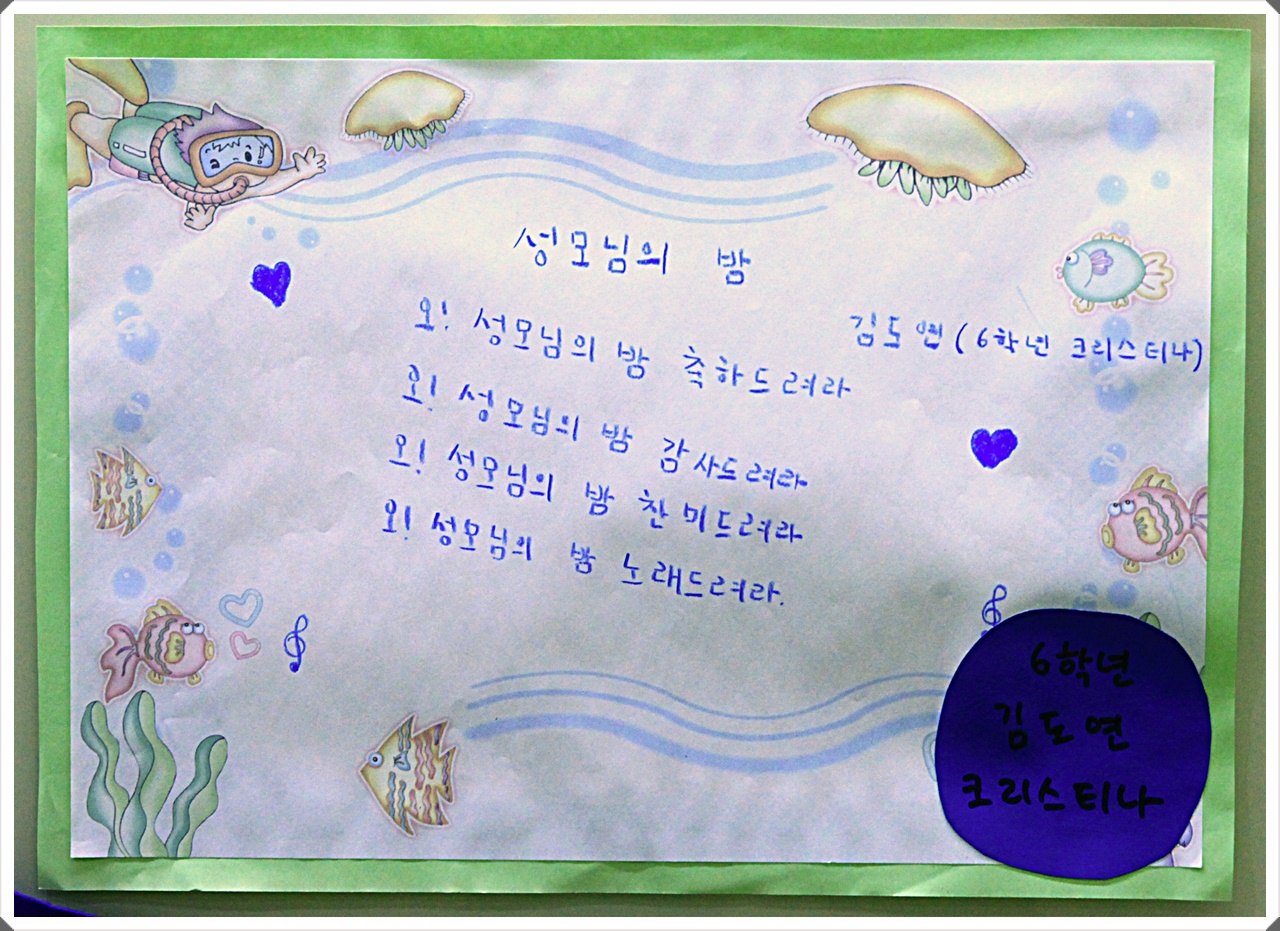 성모님의 밤
김도연 (6학년 크리스티나)
오! 성모님의 밤 축하드려라
오! 성모님의 밤 감사드려라
오! 성모님의 밤 찬미드려라
오! 성모님의 밤 노래드려라.
6학년
김도연
크리스티나